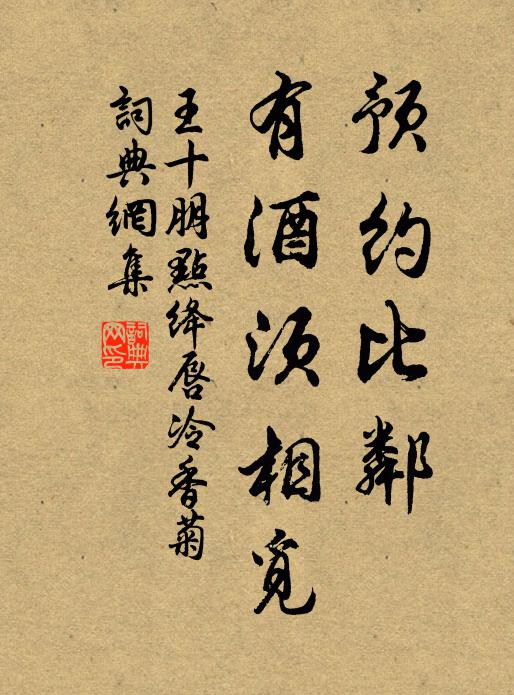 預約比鄰
有酒須相覓
王十朋點絳唇冷香菊
詞典網集
詞典網印